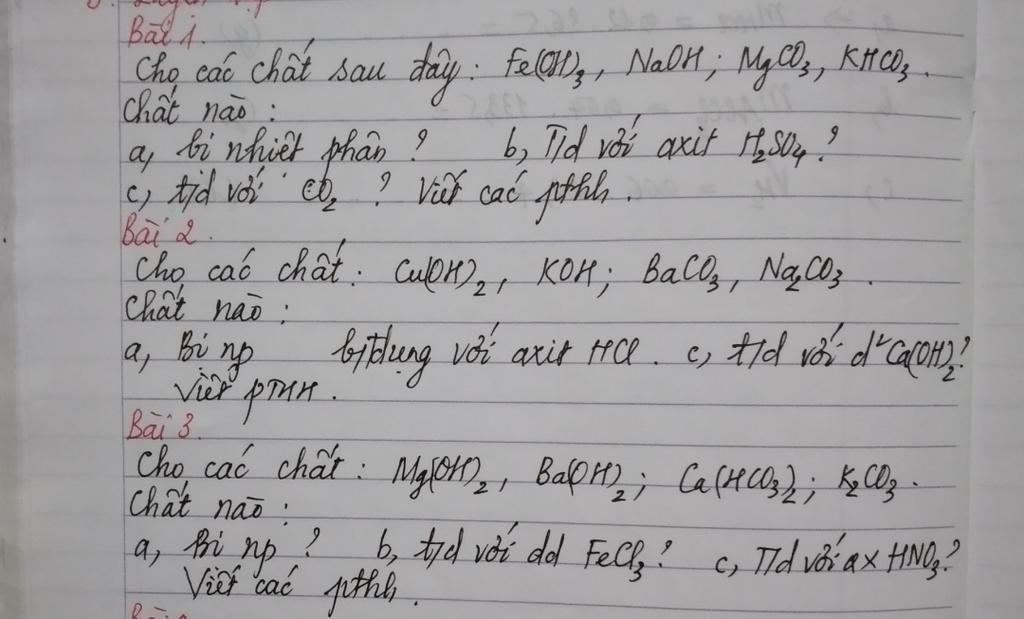 Bài 1.
Cho các chất sau đây : Fe(OH)3, NaOH ; MgCO3, KHCO3.
Chất nào :
a, bị nhiệt phân ? b, T/d với axit H2SO4 ?
c, t/d với CO2 ? Viết các pthh.
Bài 2.
Cho các chất : Cu(OH)2, KOH ; BaCO3, Na2CO3.
Chất nào :
a, Bị np b, t/dụng với axit HCl. c, t/d với d² Ca(OH)2 ?
Viết PTHH.
Bài 3.
Cho các chất : Mg(OH)2, Ba(OH)2 ; Ca(HCO3)2 ; K2CO3.
Chất nào :
a, Bị np ? b, t/d với dd FeCl3 ? c, T/d với ax HNO3 ?
Viết các pthh.